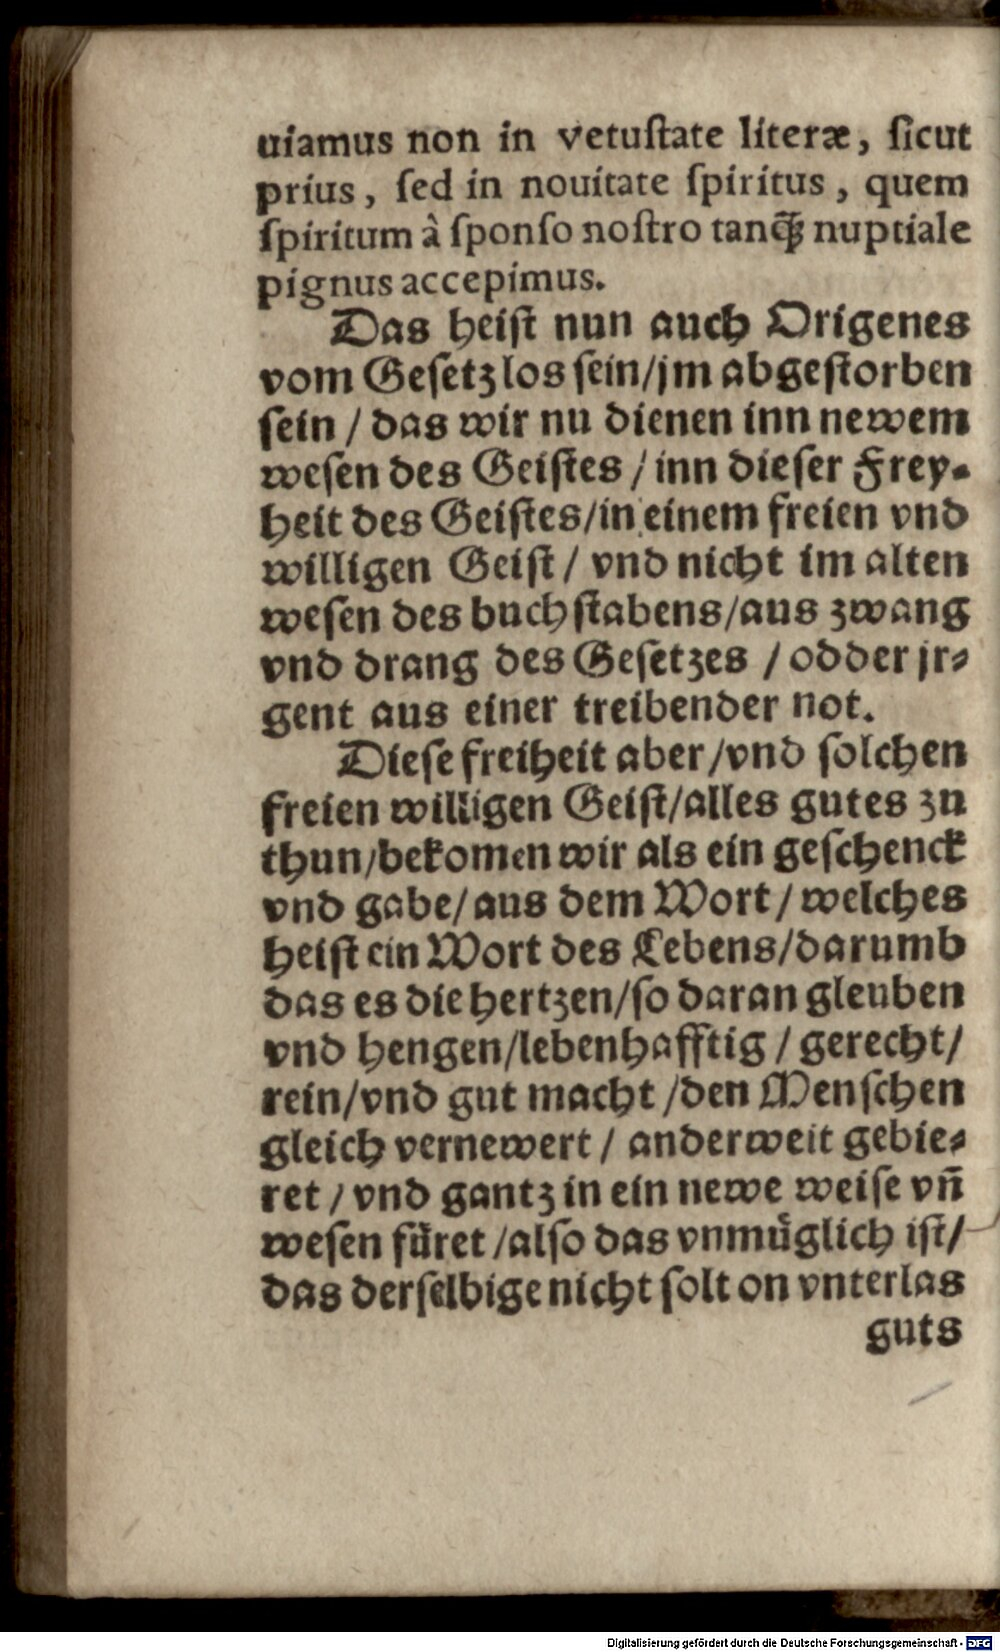 uiamus non in vetuſtate literæ, ſicut
prius, ſed in nouitate ſpiritus, quem
ſpiritum à ſponſo noſtro tanq̃ꝫ nuptiale
pignus accepimus.
Das heiſt nun auch Origenes
vom Geſetz los ſein/jm abgeſtorben
ſein / das wir nu dienen inn newem
weſen des Geiſtes / inn dieſer Frey⸗
heit des Geiſtes/in einem freien vnd
willigen Geiſt / vnd nicht im alten
weſen des buchſtabens/aus zwang
vnd drang des Geſetzes / odder jr⸗
gent aus einer treibender not.
Dieſe freiheit aber/vnd ſolchen
freien willigen Geiſt/alles gutes zu
thun/bekomen wir als ein geſchenck
vnd gabe/ aus dem Wort / welches
heiſt ein Wort des Lebens/darumb
das es die hertzen/ſo daran gleuben
vnd hengen/lebenhafftig / gerecht/
rein/vnd gut macht /den Menſchen
gleich vernewert / anderweit gebie⸗
ret / vnd gantz in ein newe weiſe vn̄
weſen fuͤret /alſo das vnmuͤglich iſt/
das derſelbige nicht ſolt on vnterlas
guts
Digitalisierung gefördert durch die Deutsche Forschungsgemeinschaft - DFG